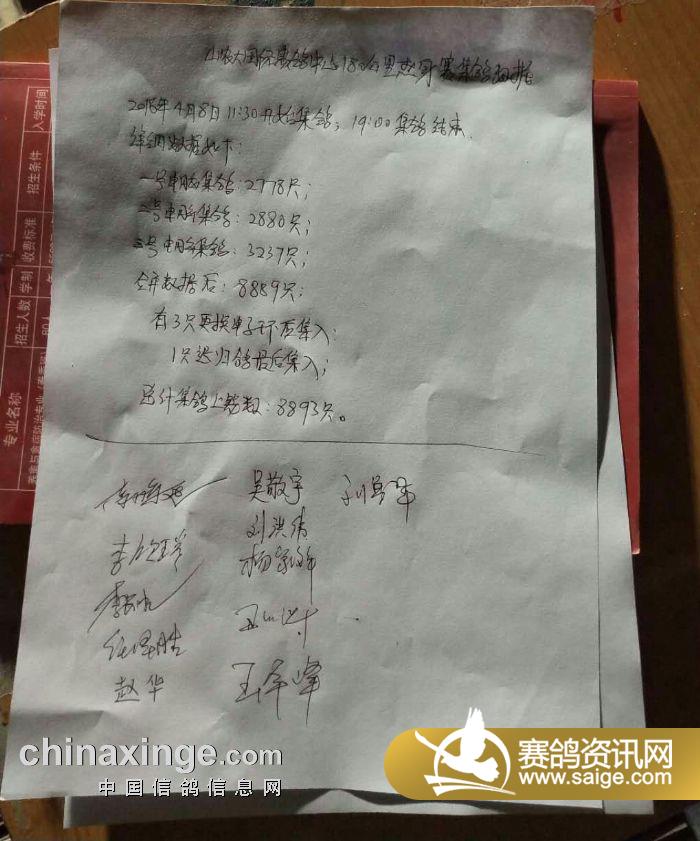 山农大国际赛鸽中心180公里热身赛集鸽数据
2018年4月8日11:30开始集鸽，19:00集鸽结束.
详细数据如下：
一号电脑集鸽：2778只；
二号电脑集鸽：2880只；
三号电脑集鸽：3237只；
合并数据后：8889只；
有3只更换电子环后集入；
1只迟归鸽最后集入；
总计集鸽上笼数：8893只。
吴敬宇
刘洪伟
赵华
王军峰
入学时间
招生条件
收费标准
学制
招生人数
专业名称
80人
chinaxinge.com
中国信鸽信息网
赛鸽资讯网
www.saige.com